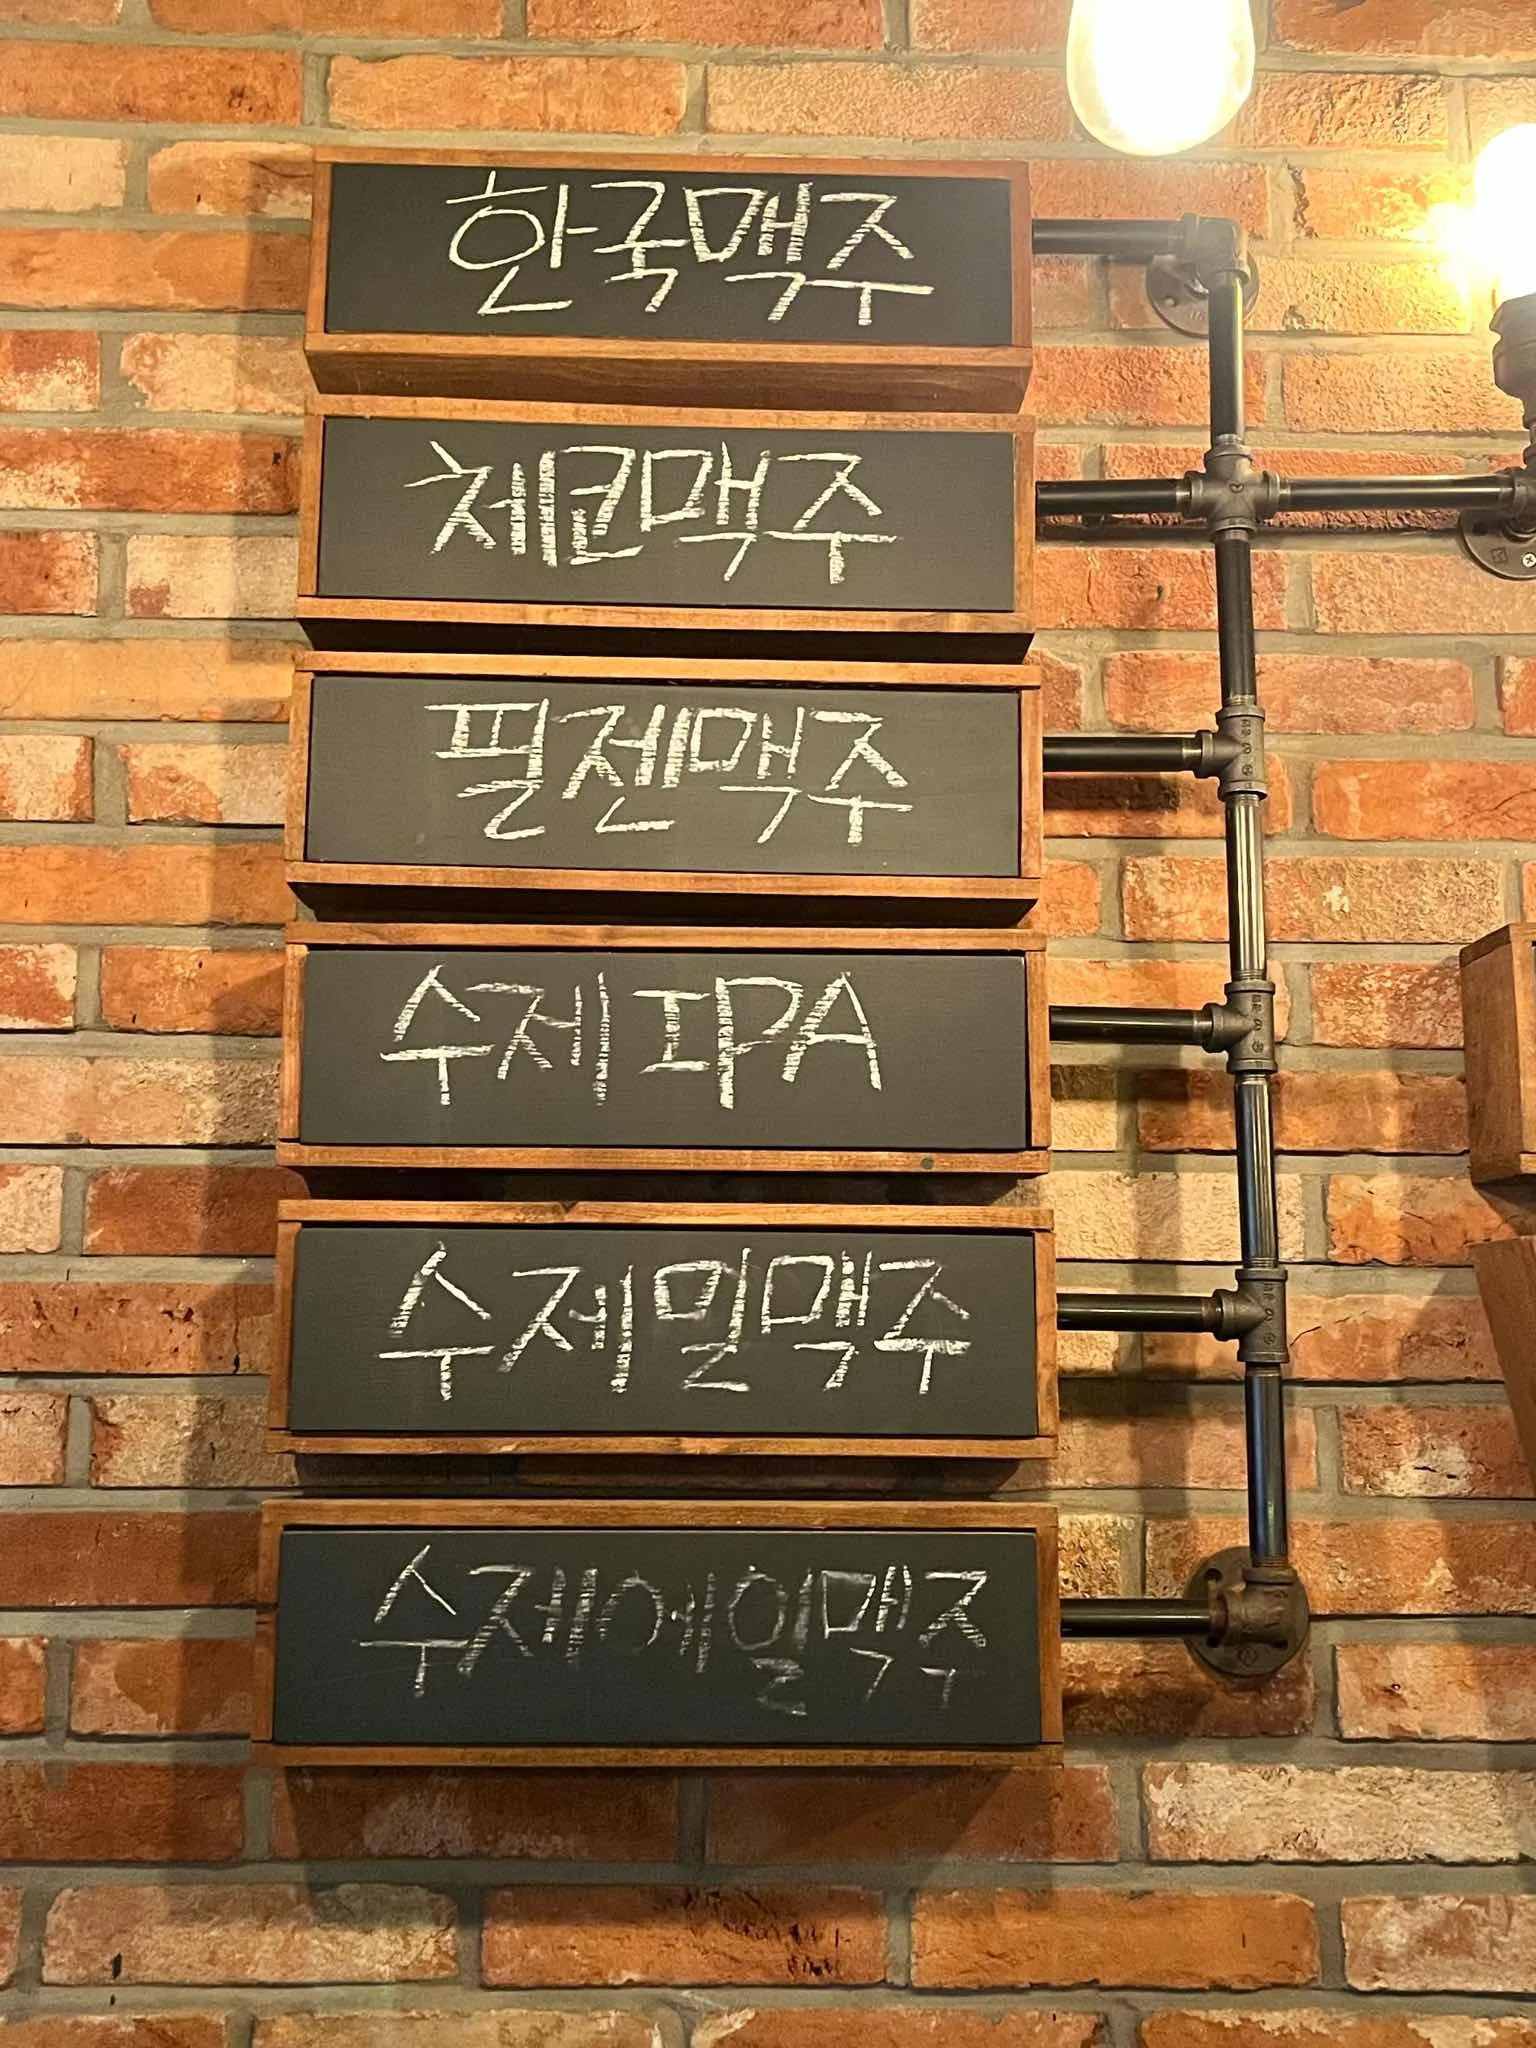 한국맥주
체코맥주
필젠맥주
수제 IPA
수제밀맥주
수제에일맥주